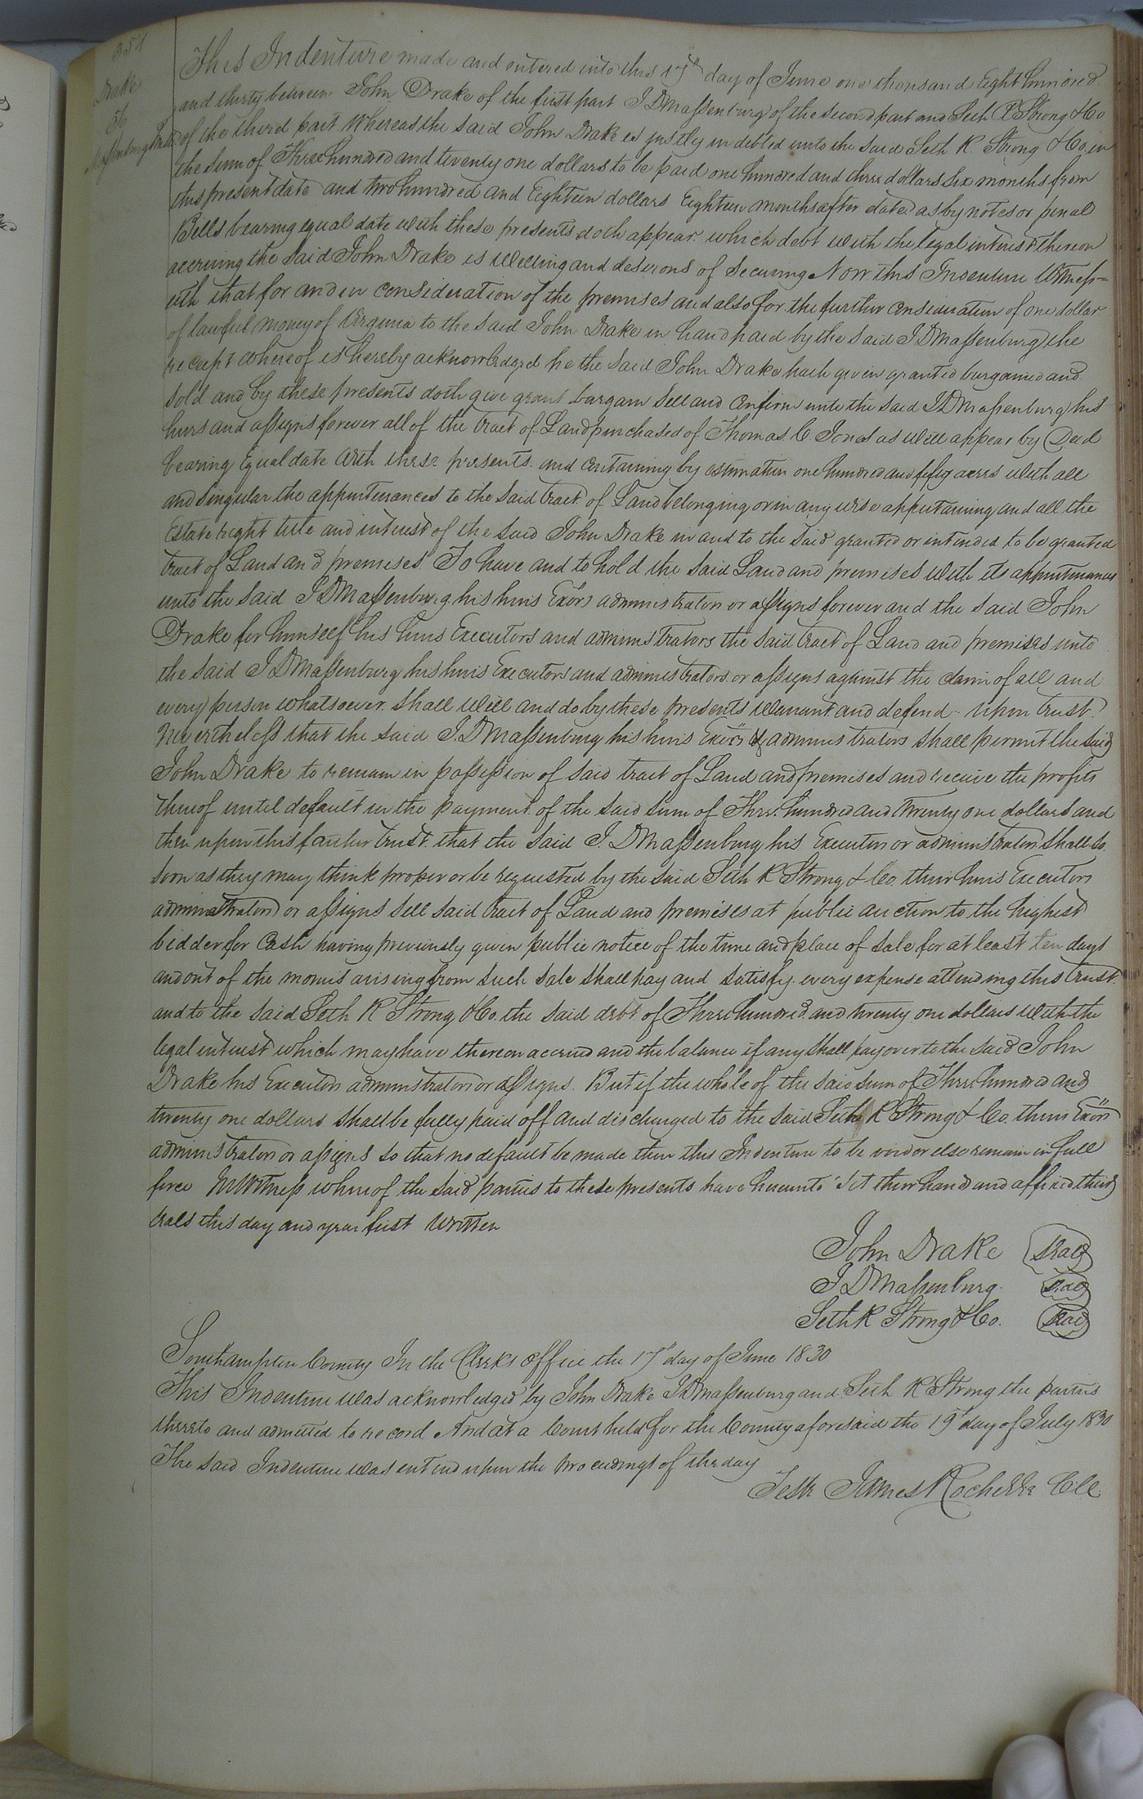 354
Drake
To
Massenburg Trustee
This Indenture made and entered into this 17th day of June one thousand Eight hundred
and thirty between John Drake of the first part J D Massenburg of the second part and Seth R Strong & Co
of the third part Whereas the said John Drake is justly indebted unto the said Seth R Strong & Co in
the sum of Three hundred and twenty one dollars to be paid one hundred and three dollars Six months from
this present date and two hundred and Eighteen dollars Eighteen months after date as by notes or penal
Bills bearing equal date with these presents doth appear which debt with the legal interest thereon
accruing the said John Drake is Willing and desirous of Securing Now this Indenture Witness-
eth that for and in consideration of the premises and also for the further consideration of one dollar
of lawful money of Virginia to the said John Drake in hand paid by the said J D Massenburg the
receipt whereof is hereby acknowledged he the said John Drake hath given granted bargained and
sold and by these presents doth give grant bargain Sell and Confirm unto the said J D Massenburg his
heirs and assigns forever all of the tract of Land purchased of Thomas C Jones as will appear by Deed
bearing Equal date With these presents and containing by estimation one hundred and fifty acres with all
and singular the appurtenances to the said tract of Land belonging or in any wise appertaining and all the
Estate right title and interest of the said John Drake in and to the said granted or intended to be granted
tract of Land and premises To have and to hold the said Land and premises with its appurtenances
unto the said J D Massenburg his heirs Exors administrators or assigns forever and the said John
Drake for himself his heirs Executors and administrators the said tract of Land and premises unto
the said J D Massenburg his heirs Executors and administrators or assigns against the claim of all and
every person whatsoever shall Will and do by these presents Warrant and defend upon trust
Nevertheless that the said J. D Massenburg his heirs Exors & administrators shall permit the said
John Drake to remain in possession of said tract of Land and premises and receive the profits
thereof until default in the payment of the said sum of Three hundred and twenty one dollars and
then upon this further trust that the said J. D Massenburg his Executors or administrators shall so
soon as they may think proper or be requested by the said Seth R Strong & Co. their heirs Executors
administrators or assigns Sell said tract of Land and premises at public auction to the highest
bidder for Cash having previously given public notice of the time and place of sale for at least ten days
and out of the monies arising from such sale shall pay and satisfy every expense attending this trust
and to the said Seth R Strong & Co. the said debt of Three hundred and twenty one dollars With the
legal interest which may have thereon accrued and the balance if any shall pay over to the said John
Drake his Executors administrators or assigns. But if the whole of the said sum of Three hundred and
twenty one dollars shall be fully paid off and discharged to the said Seth R Strong & Co. theirs Exors
administrators or assigns so that no default be made then this Indenture to be void or else remain in full
force In Witness whereof the said parties to these presents have hereunto set their hands and affixed their
seals this day and year first Written
John Drake Seal
J D Massenburg Seal
Seth R Strong & Co. Seal
Southampton County In the Clerks office the 17th day of June 1830
This Indenture was acknowledged by John Drake J D Massenburg and Seth R Strong the parties
thereto and admitted to record And at a Court held for the County aforesaid the 19th day of July 1830
The said Indenture was entered upon the proceedings of the day
Teste James Rochelle Clk